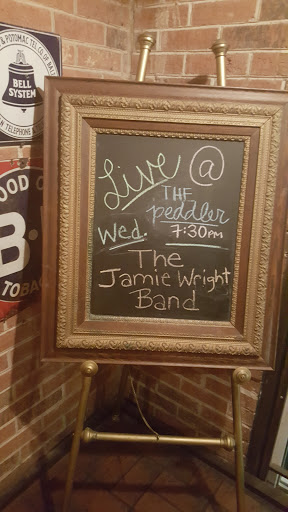 & POTOMAC TEL. CO. OF BAL
BELL
SYSTEM
TELEPHONE
OOD
B.
TOBAC
Live @
THE
peddler
Wed. 7:30PM
The
Jamie Wright
Band